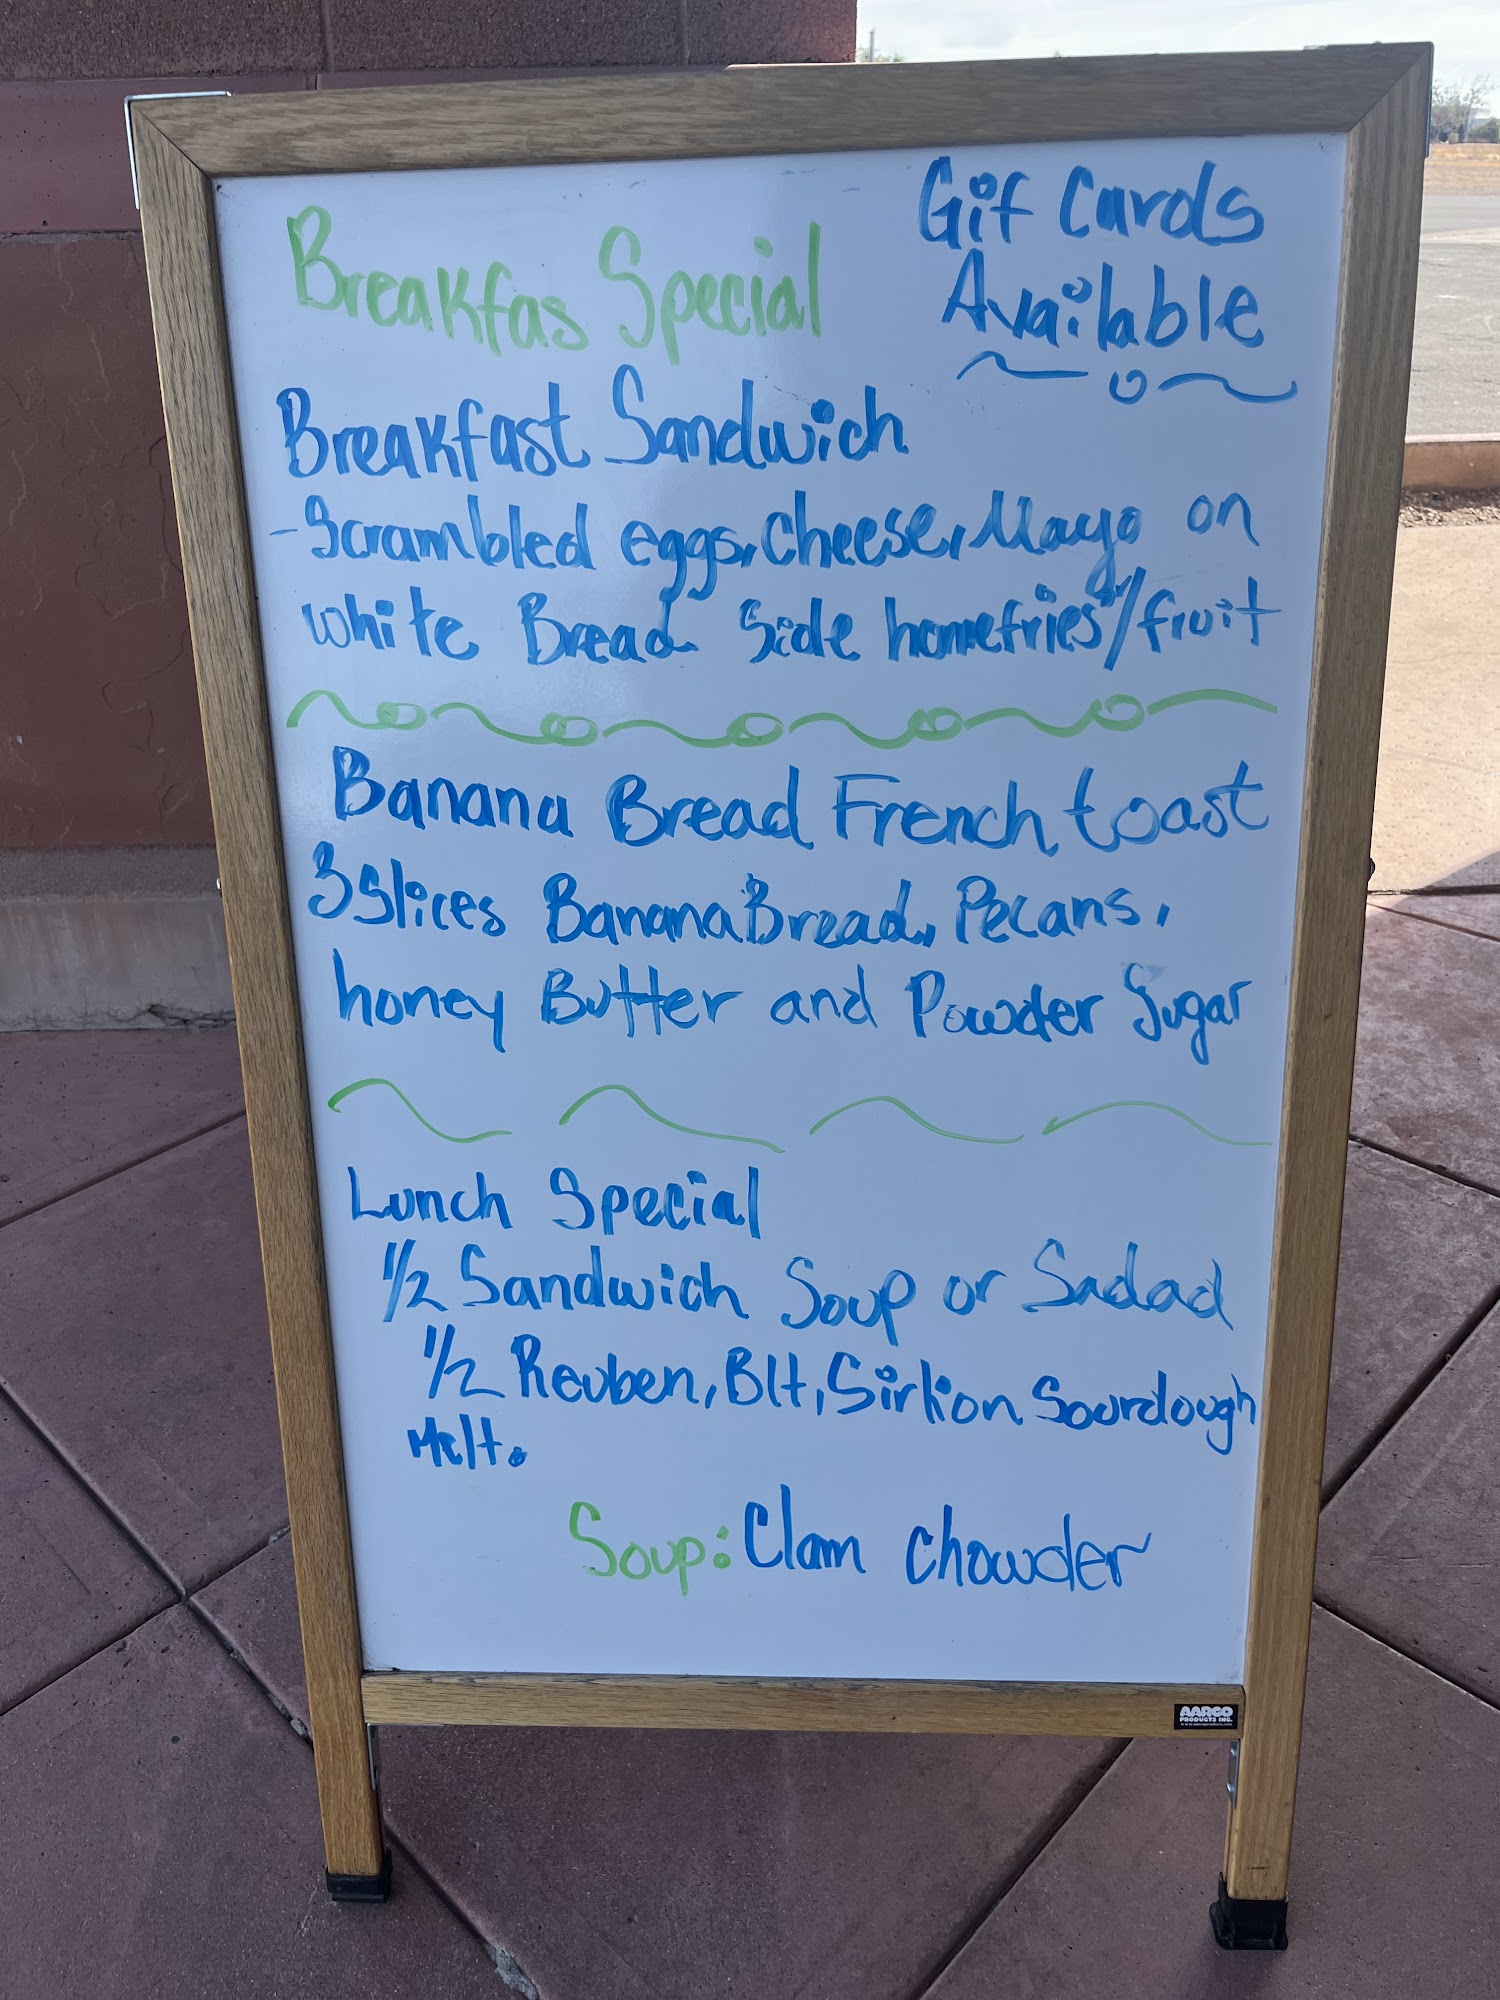 Gif Cards
Available
Breakfas Special
Breakfast Sandwich
-Scrambled eggs, cheese, Mayo on
white Bread Side homefries/fruit
Banana Bread French toast
3 Slices Banana Bread, Pecans,
honey Butter and Powder Sugar
Lunch Special
1/2 Sandwich Soup or Sadad
1/2 Reuben, Blt, Sirlion Sourdough
Melt.
Soup: Clam Chowder
AARCO
PRODUCTS INC.